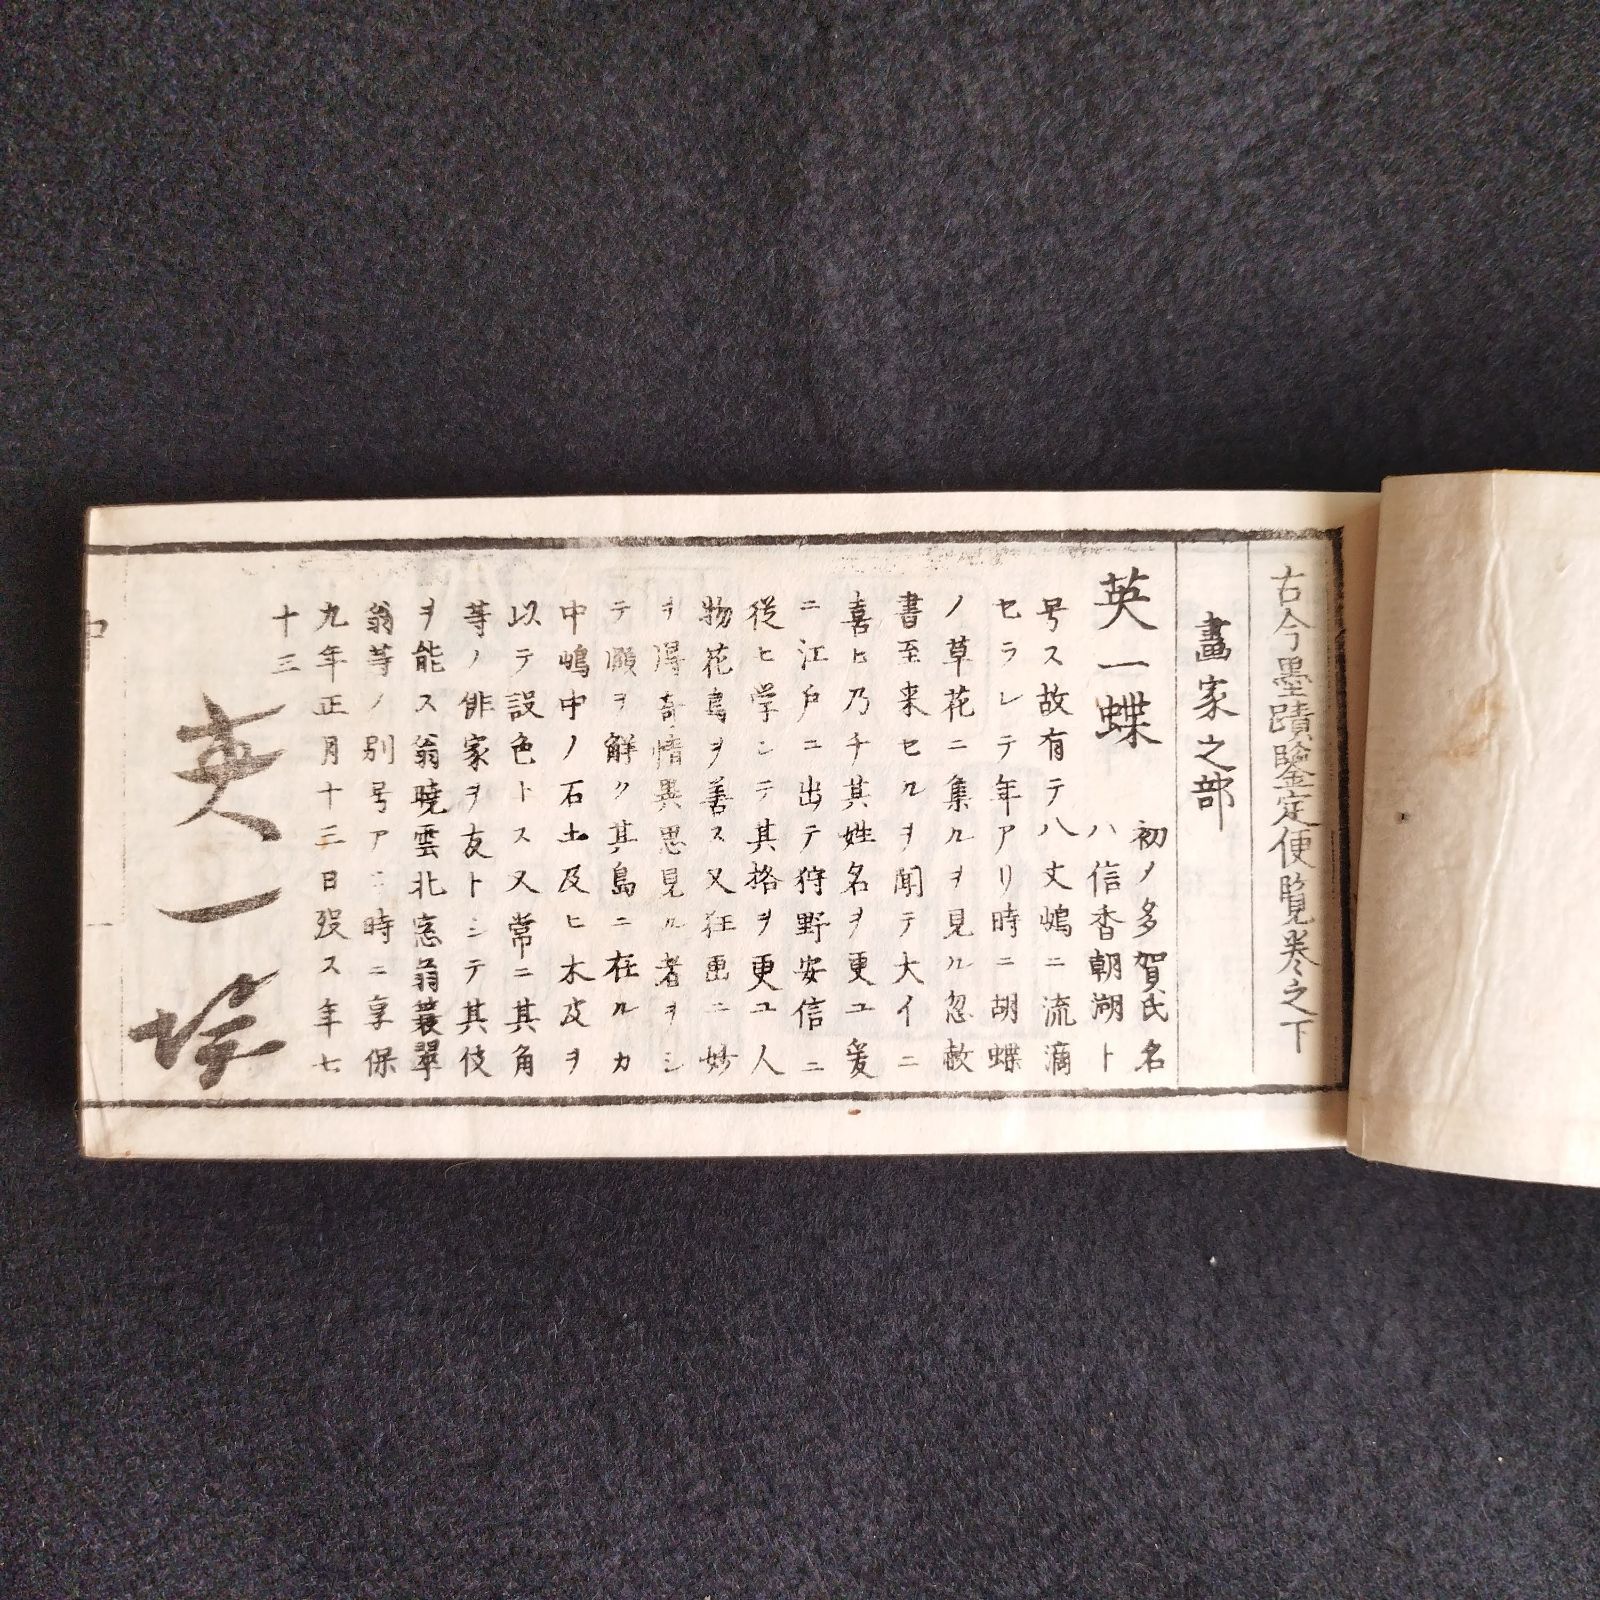 古今墨蹟鑒定便覧巻之下
畫家之部
英一蝶
初ノ多賀氏名
ハ信香朝湖ト
号ス故有テ八丈嶋ニ流謫
セラレテ年アリ時ニ胡蝶
ノ草花ニ集ルヲ見ル忽赦
書至来セルヲ聞テ大イニ
喜ヒ乃チ其姓名ヲ更ユ爰
ニ江戸ニ出テ狩野安信ニ
従ヒ学ンテ其格ヲ更ユ人
物花鳥ヲ善ス又狂画ニ妙
ヲ得奇情異思見ル者ヲシ
テ頤ヲ解ク其島ニ在ルカ
中嶋中ノ石土及ヒ木皮ヲ
以テ設色トス又常ニ其角
等ノ俳家ヲ友トシテ其伎
ヲ能ス翁暁雲北窓翁蓑翠
翁等ノ別号アリ時ニ享保
九年正月十三日歿ス年七
十三
英一蝶